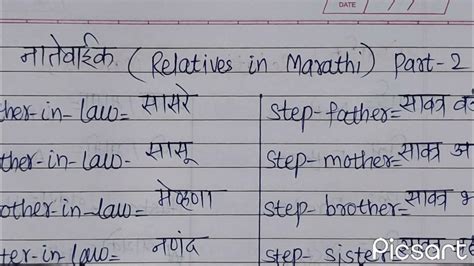 DATE
नातेवाईक (Relatives in Marathi) Part-2
ther-in-law= सासरे step-father= सावत्र
ther-in-law- सासू step-mother= सावत्र
other-in-law= मेव्हणा step-brother= सावत्र
ter-in law= नणंद step-sister= सावत्र
Picsart